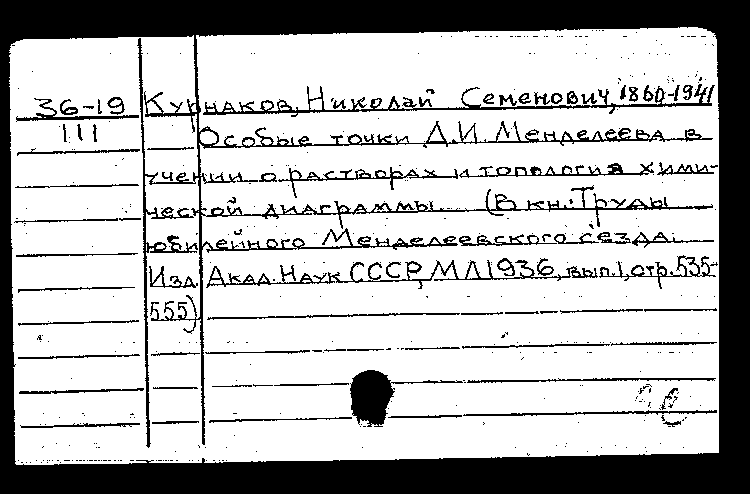 36-19 Курнаков, Николай Семенович, 1860-1941
III Особые точки Д.И. Менделеева в
учении о растворах и топология хими-
ческой диаграммы. (В кн.: Труды
юбилейного Менделеевского с'езда.
Изд. Акад. Наук СССР, М Л 1936, вып. 1, стр. 535-
555)